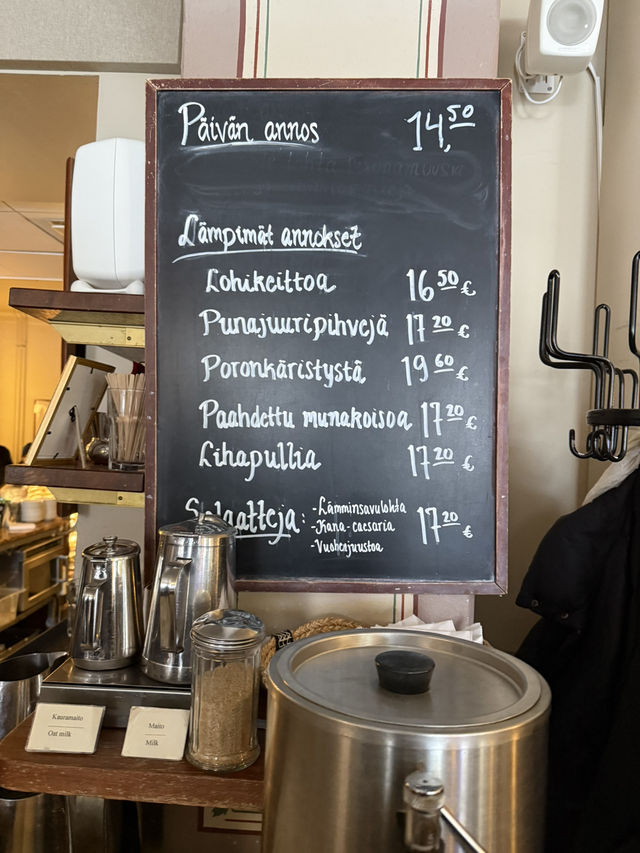 Päivän annos 14,50
Lämpimät annokset
Lohikeittoa 16 50 €
Punajuuripihvejä 17 20 €
Poronkäristystä 19 60 €
Paahdettu munakoisoa 17 20 €
Lihapullia 17 20 €
Salaatteja: -Lämminsavulohta
-Kana-caesaria 17 20 €
-Vuohenjuustoa
Kauramaito
Oat milk
Maito
Milk